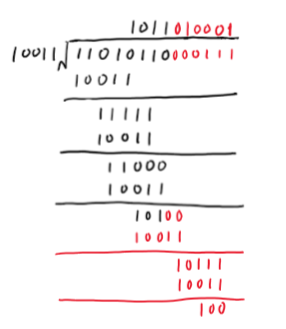 1011010001
10011 11010110000111
10011
11111
10011
11000
10011
10100
10011
10111
10011
100